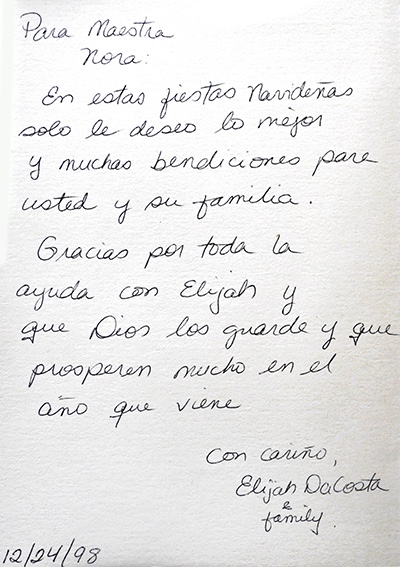 Para Maestra
Nora:
En estas fiestas Navideñas
solo le deseo lo mejor
y muchas bendiciones pare
usted y su familia.
Gracias por toda la
ayuda con Elijah y
que Dios los guarde y que
prosperen mucho en el
año que viene
Con cariño,
Elijah DaCosta
&
family.
12/24/98